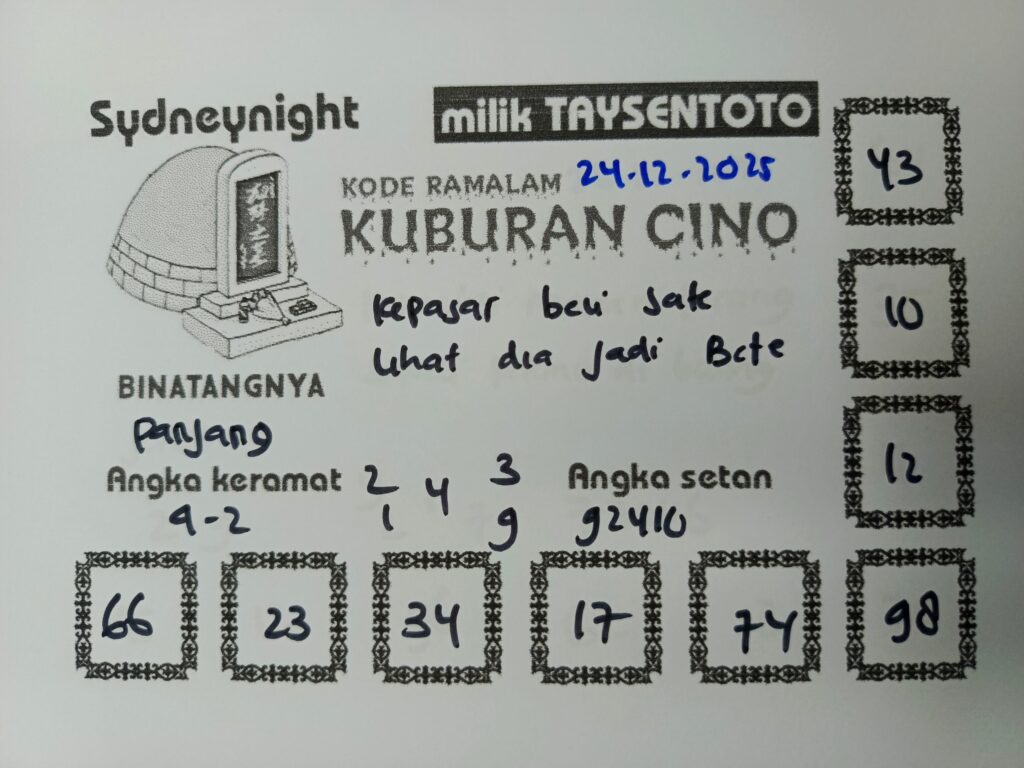 Sydneynight
milik TAYSENTOTO
KODE RAMALAM 24.12.2025
KUBURAN CINO
Kepasar beli sate
Lihat dia jadi Bete
BINATANGNYA
panjang
Angka keramat
9-2
2 4 3
1 9
Angka setan
92410
43
10
12
66 23 34 17 74 98